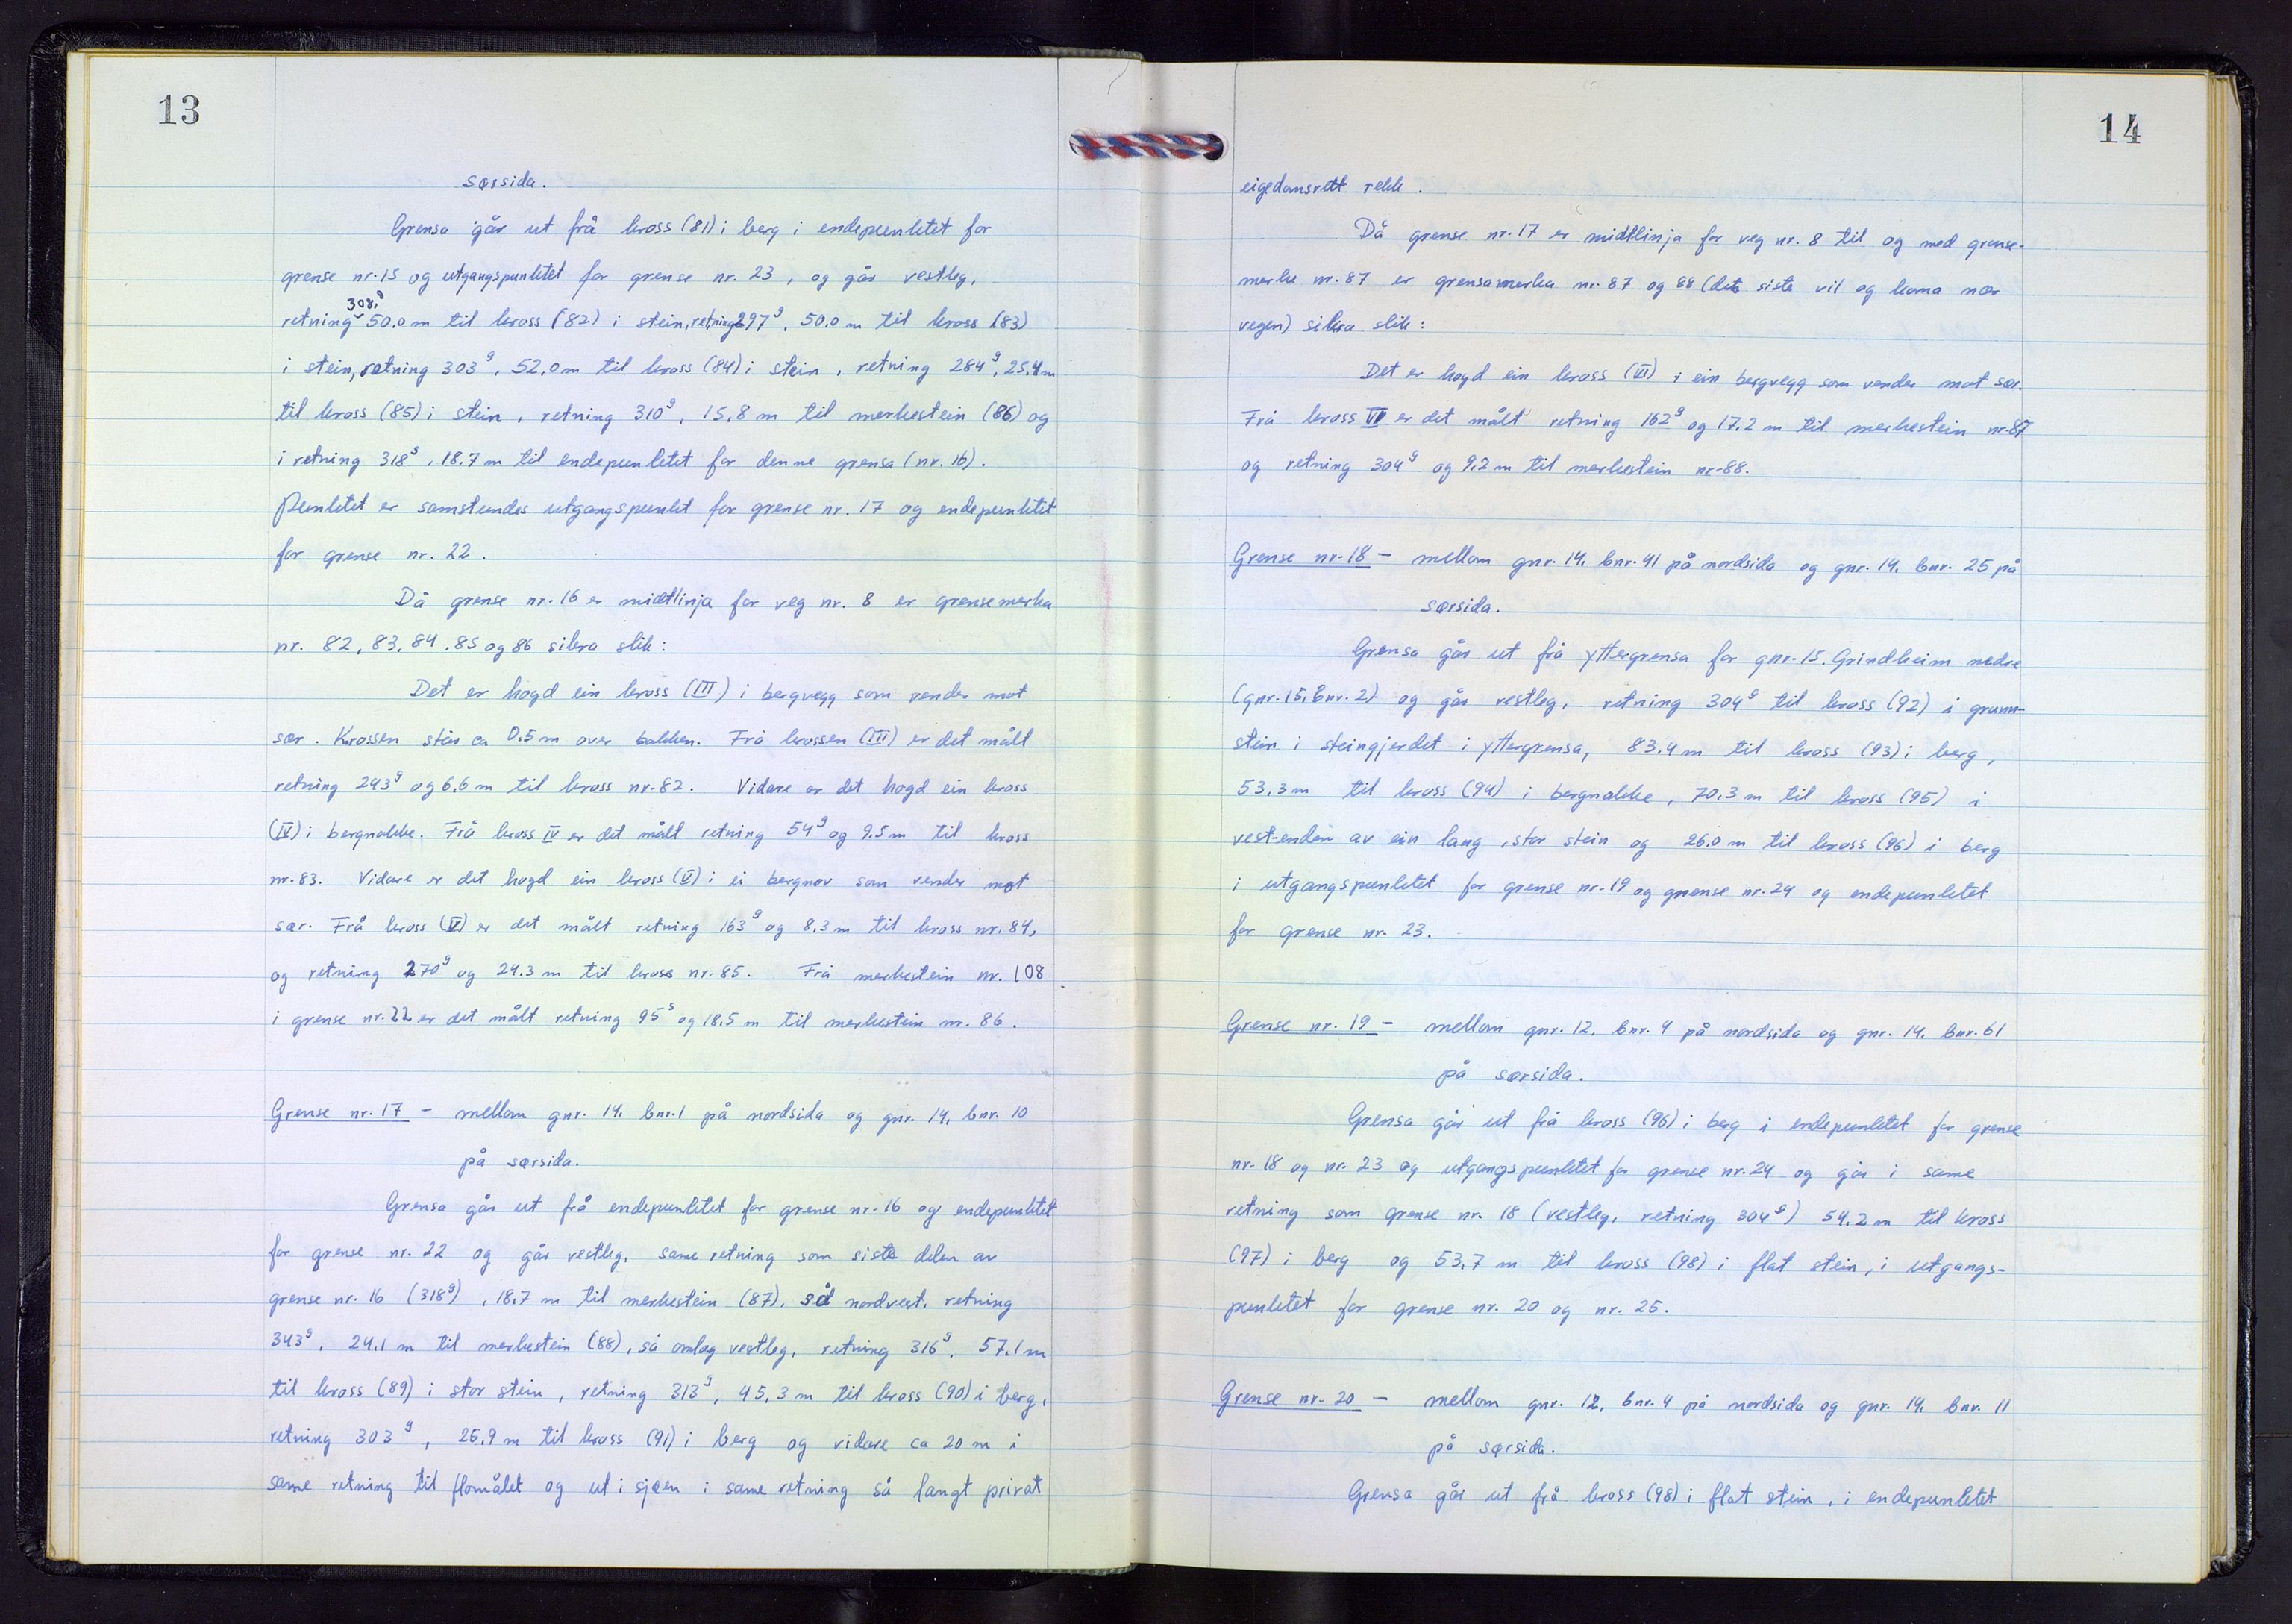 13
sørsida.
Grensa går ut frå kross (81) i berg i endepunktet for
grense nr. 15 og utgangspunktet for grense nr. 23, og går vestleg,
308g
retning 50.0 m til kross (82) i stein, retning 297g, 50.0 m til kross (83)
i stein, retning 303g, 52,0 m til kross (84) i stein, retning 284g, 25,4 m
til kross (85) i stein, retning 310g, 15,8 m til merkestein (86) og
i retning 318g, 18.7 m til endepunktet for denne grensa (nr. 16).
Punktet er samstundes utgangspunkt for grense nr. 17 og endepunktet
for grense nr. 22.
Då grense nr. 16 er midtlinja for veg nr. 8 er grensemerka
nr. 82, 83, 84, 85 og 86 sikra slik:
Det er hogd ein kross (III) i bergvegg som vender mot
sør. Krossen står ca 0.5 m over bakken. Frå krossen (III) er det målt
retning 243g og 6.6 m til kross nr. 82. Vidare er det hogd ein kross
(IV) i bergnakke. Frå kross IV er det målt retning 54g og 9.5 m til kross
nr. 83. Vidare er det hogd ein kross (V) i ei bergnov som vender mot
sør. Frå kross (V) er det målt retning 163g og 8.3 m til kross nr. 84,
og retning 270g og 24.3 m til kross nr. 85. Frå merkestein nr. 108
i grense nr. 22 er det målt retning 95g og 18.5 m til merkestein nr. 86.
Grense nr. 17 - mellom gnr. 14, bnr. 1 på nordsida og gnr. 14, bnr. 10
på sørsida.
Grensa går ut frå endepunktet for grense nr. 16 og endepunktet
for grense nr. 22 og går vestleg, same retning som siste delen av
grense nr. 16 (318g), 18,7 m til merkestein (87), så nordvest, retning
343g, 24,1 m til merkestein (88), så omlag vestleg, retning 316g, 57,1 m
til kross (89) i stor stein, retning 313g, 45,3 m til kross (90) i berg,
retning 303g, 25,9 m til kross (91) i berg og vidare ca 20 m i
same retning til flomålet og ut i sjøen i same retning så langt privat
14
eigedomsrett rekk.
Då grense nr. 17 er midtlinja for veg nr. 8 til og med grense-
merke nr. 87 er grensamerka nr. 87 og 88 (det siste vil og koma nær
vegen) sikra slik:
Det er hogd ein kross (VI) i ein bergvegg som vender mot sør.
Frå kross VI er det målt retning 162g og 17.2 m til merkestein nr. 87
og retning 304g og 9.2 m til merkestein nr. 88.
Grense nr. 18 - mellom gnr. 14, bnr. 41 på nordsida og gnr. 14, bnr. 25 på
sørsida.
Grensa går ut frå yttergrensa for gnr. 15. Grindheim nedre
(gnr. 15, bnr. 2) og går vestleg, retning 304g til kross (92) i grunn-
stein i steingjerdet i yttergrensa, 83.4 m til kross (93) i berg,
53,3 m til kross (94) i bergnakke, 70.3 m til kross (95) i
vest-enden av ein lang, stor stein og 26.0 m til kross (96) i berg
i utgangspunktet for grense nr. 19 og grense nr. 24 og endepunktet
for grense nr. 23.
Grense nr. 19 - mellom gnr. 12, bnr. 4 på nordsida og gnr. 14, bnr. 61
på sørsida.
Grensa går ut frå kross (96) i berg i endepunktet for grense
nr. 18 og nr. 23 og utgangspunktet for grense nr. 24 og går i same
retning som grense nr. 18 (vestleg, retning 304g) 54,2 m til kross
(97) i berg og 53,7 m til kross (98) i flat stein, i utgangs-
punktet for grense nr. 20 og nr. 25.
Grense nr. 20 - mellom gnr. 12, bnr. 4 på nordsida og gnr. 14, bnr. 11
på sørsida.
Grensa går ut frå kross (98) i flat stein, i endepunktet